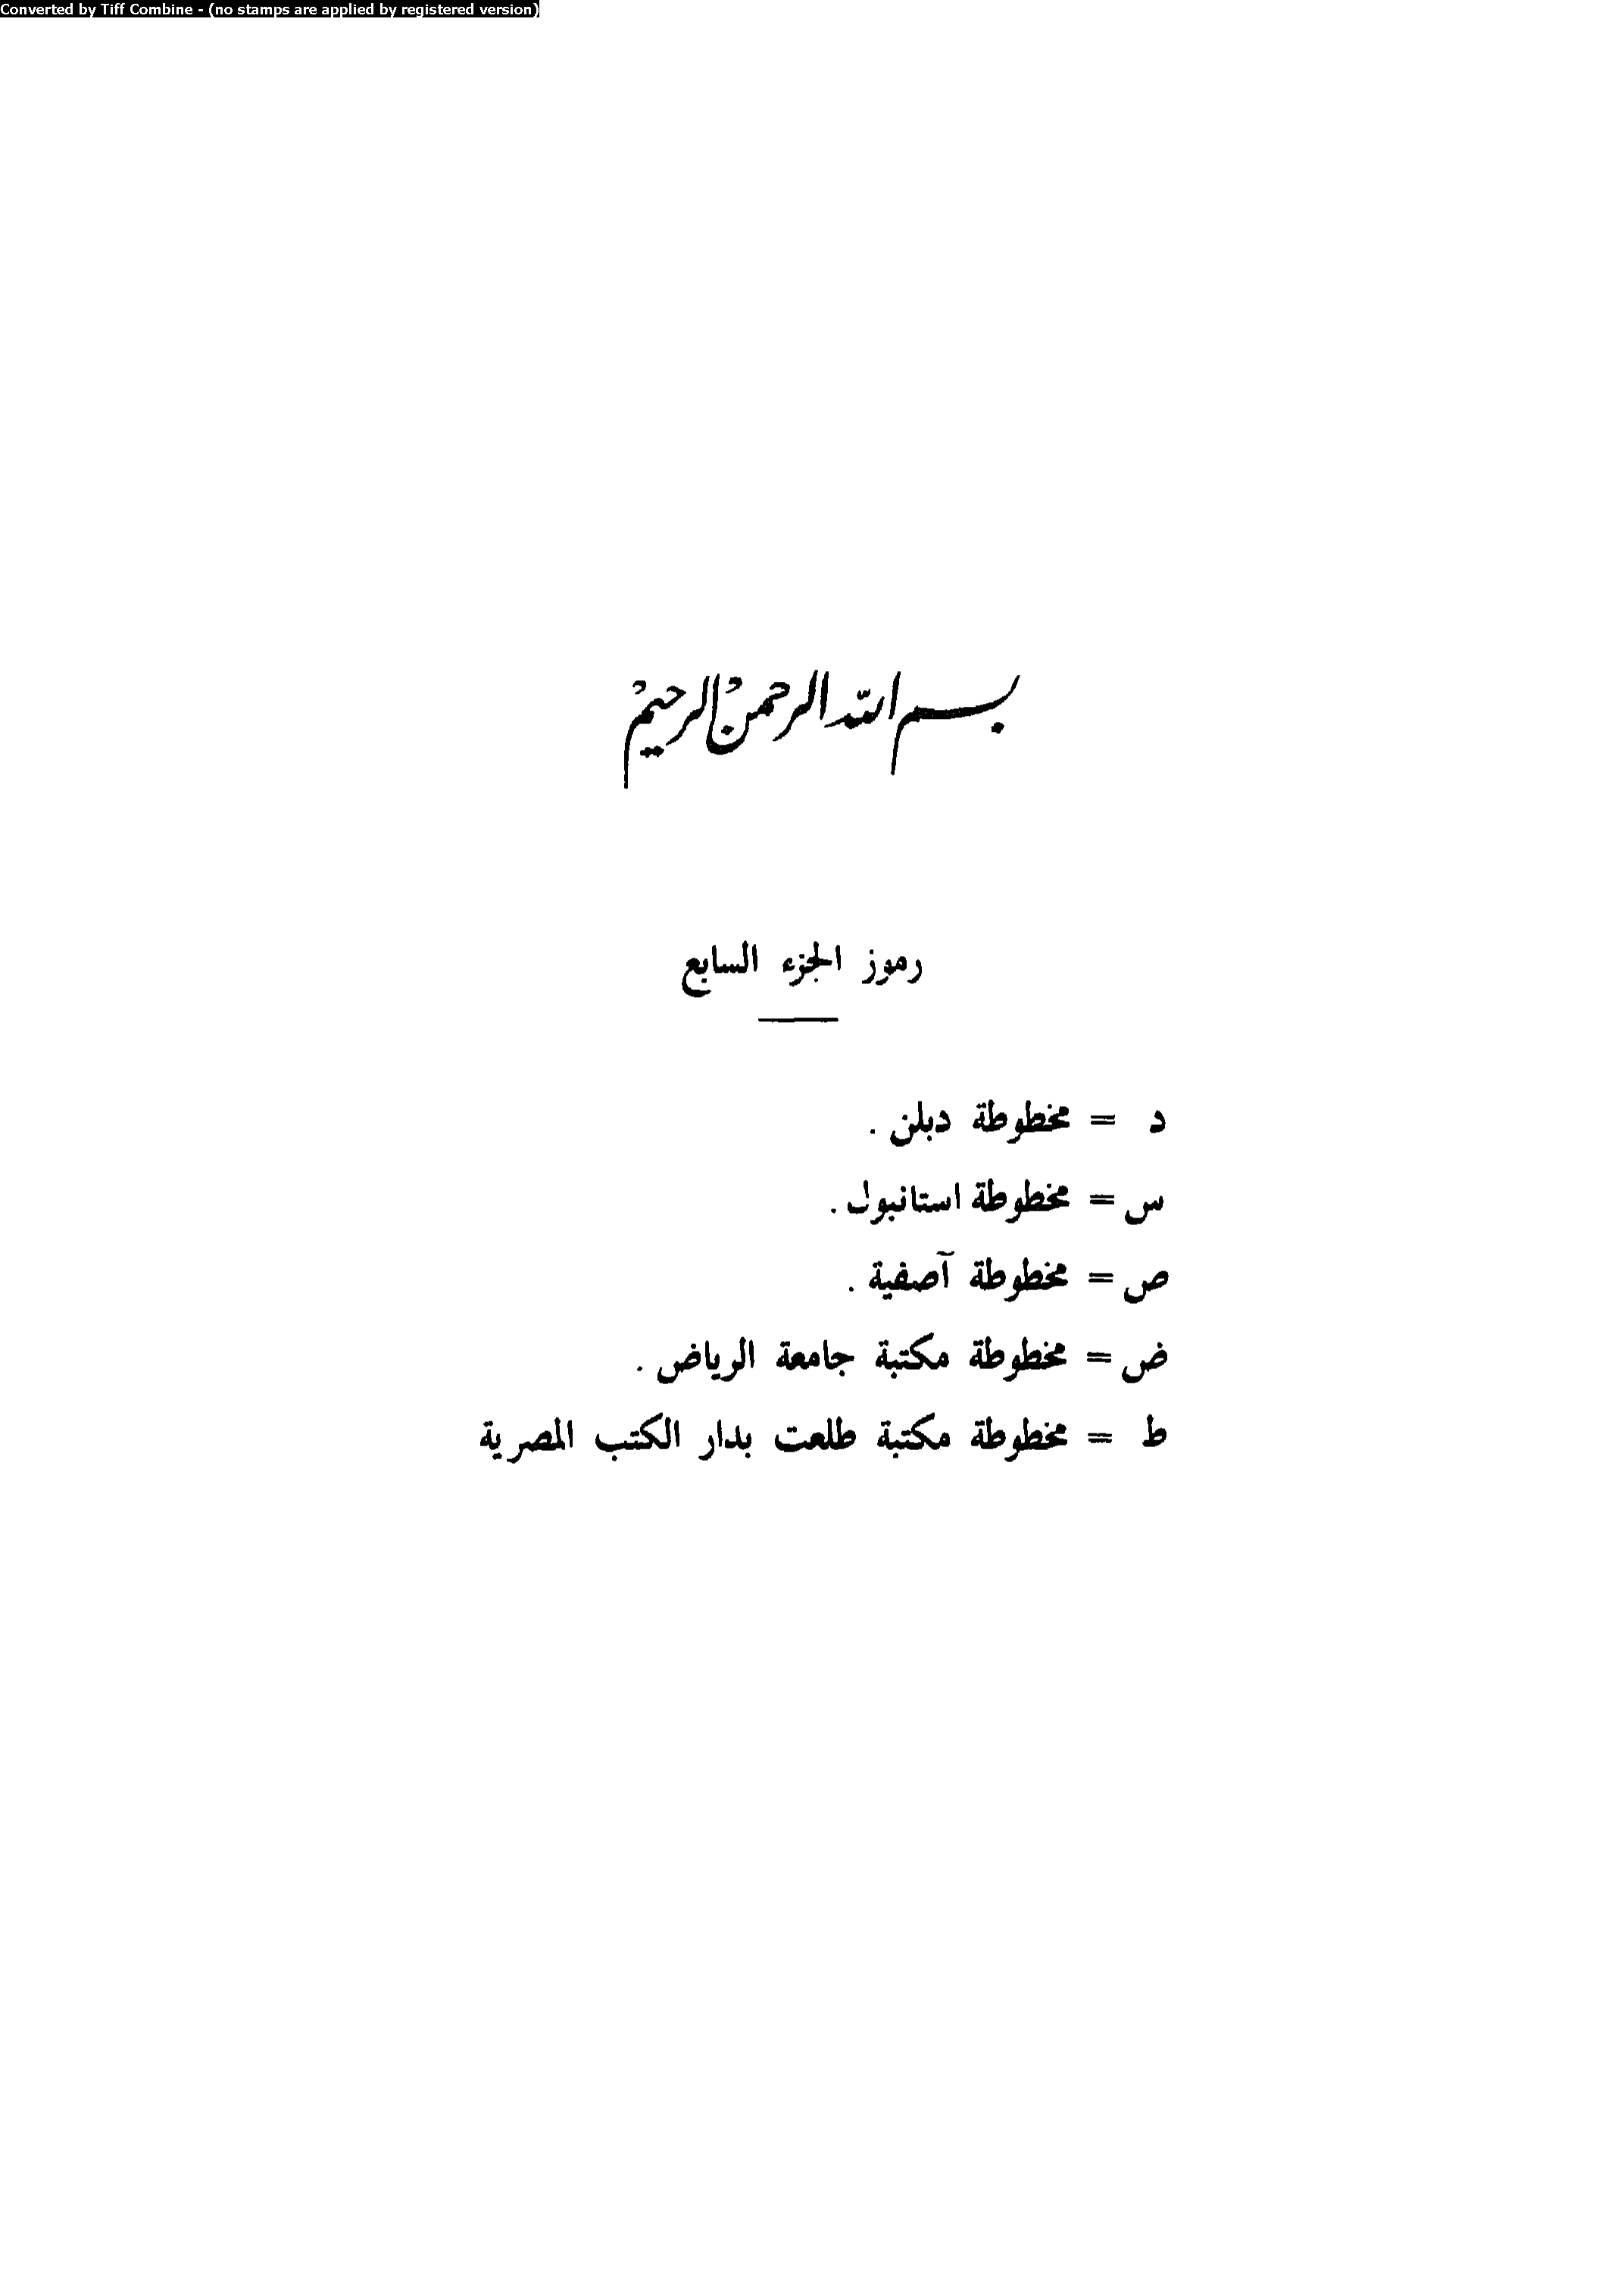 Converted by Tiff Combine - (no stamps are applied by registered version)
بسم الله الرحمن الرحيم
رموز الجزء السابع
د = مخطوطة دبلن .
س = مخطوطة استانبول .
ص = مخطوطة آصفية .
ض = مخطوطة مكتبة جامعة الرياض .
ط = مخطوطة مكتبة طلعت بدار الكتب المصرية